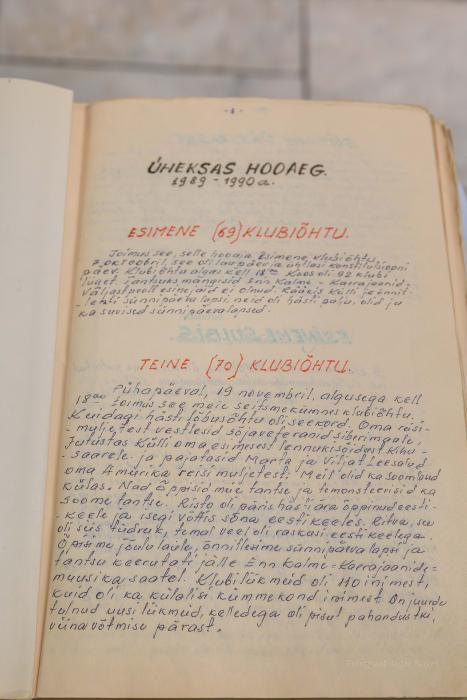 -1-
ÜHEKSAS HOOAEG.
1989 - 1990 a.
ESIMENE (69) KLUBIÕHTU.
Toimus see, selle hooaja esimene klubiõhtu,
7. oktoobril, see oli laupäev ja ühtlasi konstitutsiooni
päev. Klubiõhtu algas kell 18°° Koos oli 92 klubi
liiget. Tantsuks mängisid Enn Kalme - Kaarajaanid;
väljastpoolt esinejaid ei olnud. Rääkis Külli ja õnnit-
- leti sünnipäeva lapsi, neid oli hästi palju, olid ju
ka suvised sünnipäevalapsed.
TEINE (70) KLUBIÕHTU.
Pühapäeval, 19 novembril, algusega kell
18°° toimus see meie seitsmekümnes klubiõhtu.
Kuidagi hästi lõbus õhtu oli seekord. Oma reisi-
- muljetest vestlesid sõjaveteranid siberimaale,
jutustas Külli oma esimesest lennukisõidust Kihnu -
- saarele ja pajatasid Marta ja Viljat Leesalud
oma Amärika reisi muljetest. Meil olid ka soomlased
külas. Nad õppisid meie tantse ja demonstreerisid ka
soome tantse. Risto oli päris hästi ära õppinud eesti-
- keele ja isegi võttis sõna eesti keeles. Ritva, see
oli siis tüdruk, temal veel oli raskusi eesti keelega.
Õppisime jõulu laule, õnnitlesime sünnipäeva lapsi ja
tantsu keerutati jälle Enn Kalme =Kaarajaanide=
muusika saatel. Klubilükmeid oli 110 inimest,
kuid oli ka külalisi kümmekond inimest. On juurde
tulnud uusi lükmeid, kelledega oli pisut pahandustki,
viina võtmise pärast.